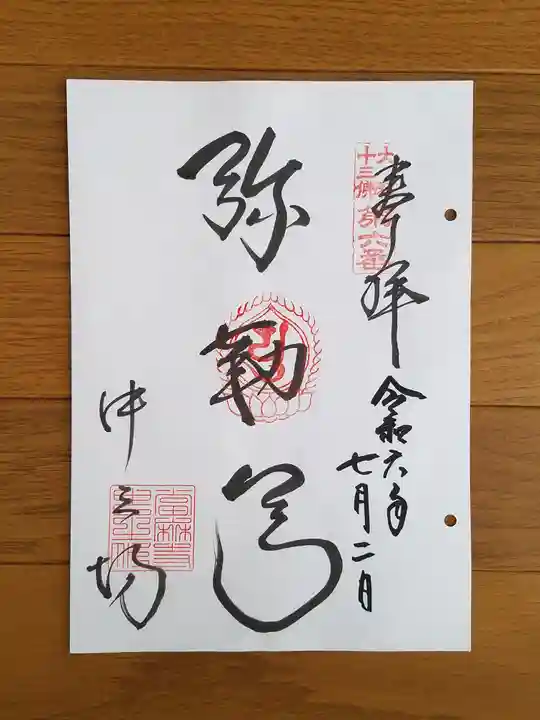 奉拝
令和六年
七月二日
十三佛第六番
弥勒尊
中之坊